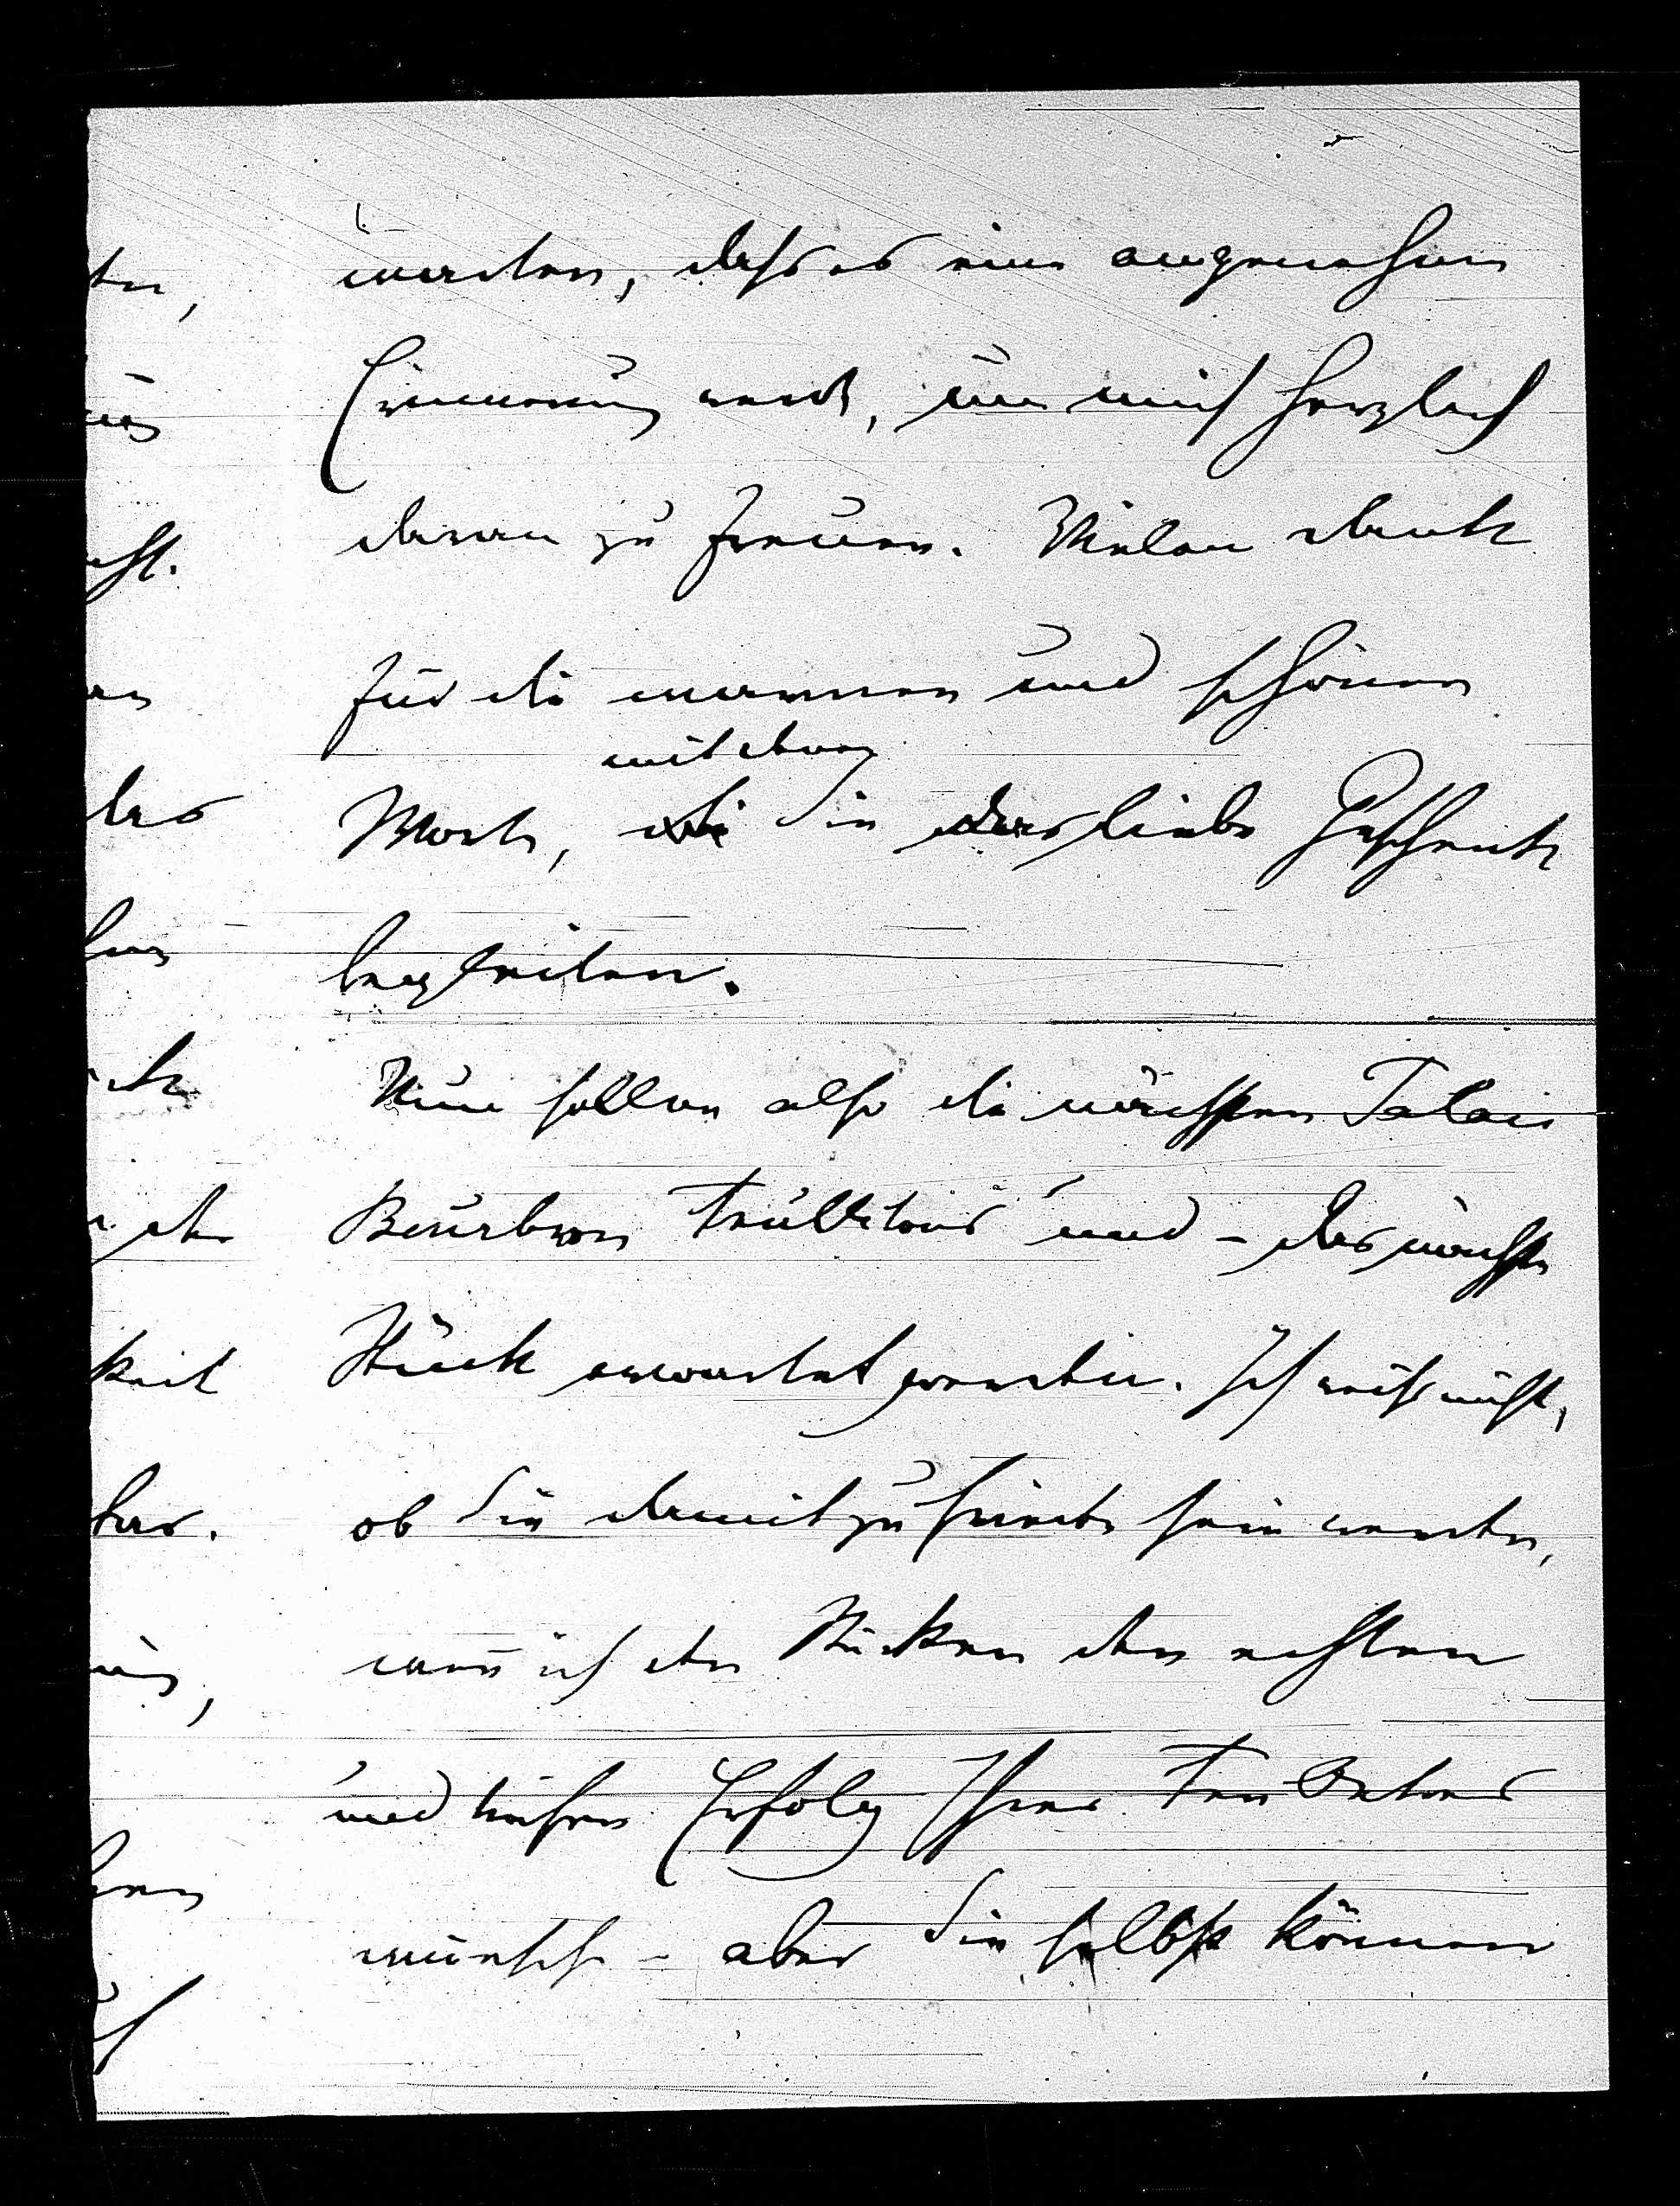 warten, dass es eine angenehme
Erinnerung wird, um mich herzlich
daran zu freuen. Vielen Dank
für die warmen und schönen
mit denen
Worte, die Sie das liebe Geschenk
begleiten.
Nun sollen also die nächsten Palais
Bourbon Feuilletons und – das nächste
Stück erwartet werden. Ich weiss nicht,
ob Sie damit zufrieden sein werden,
wenn ich den Stücken den echten
und tiefen Erfolg Ihrer Feuilletons
wünsche – aber Sie selbst können